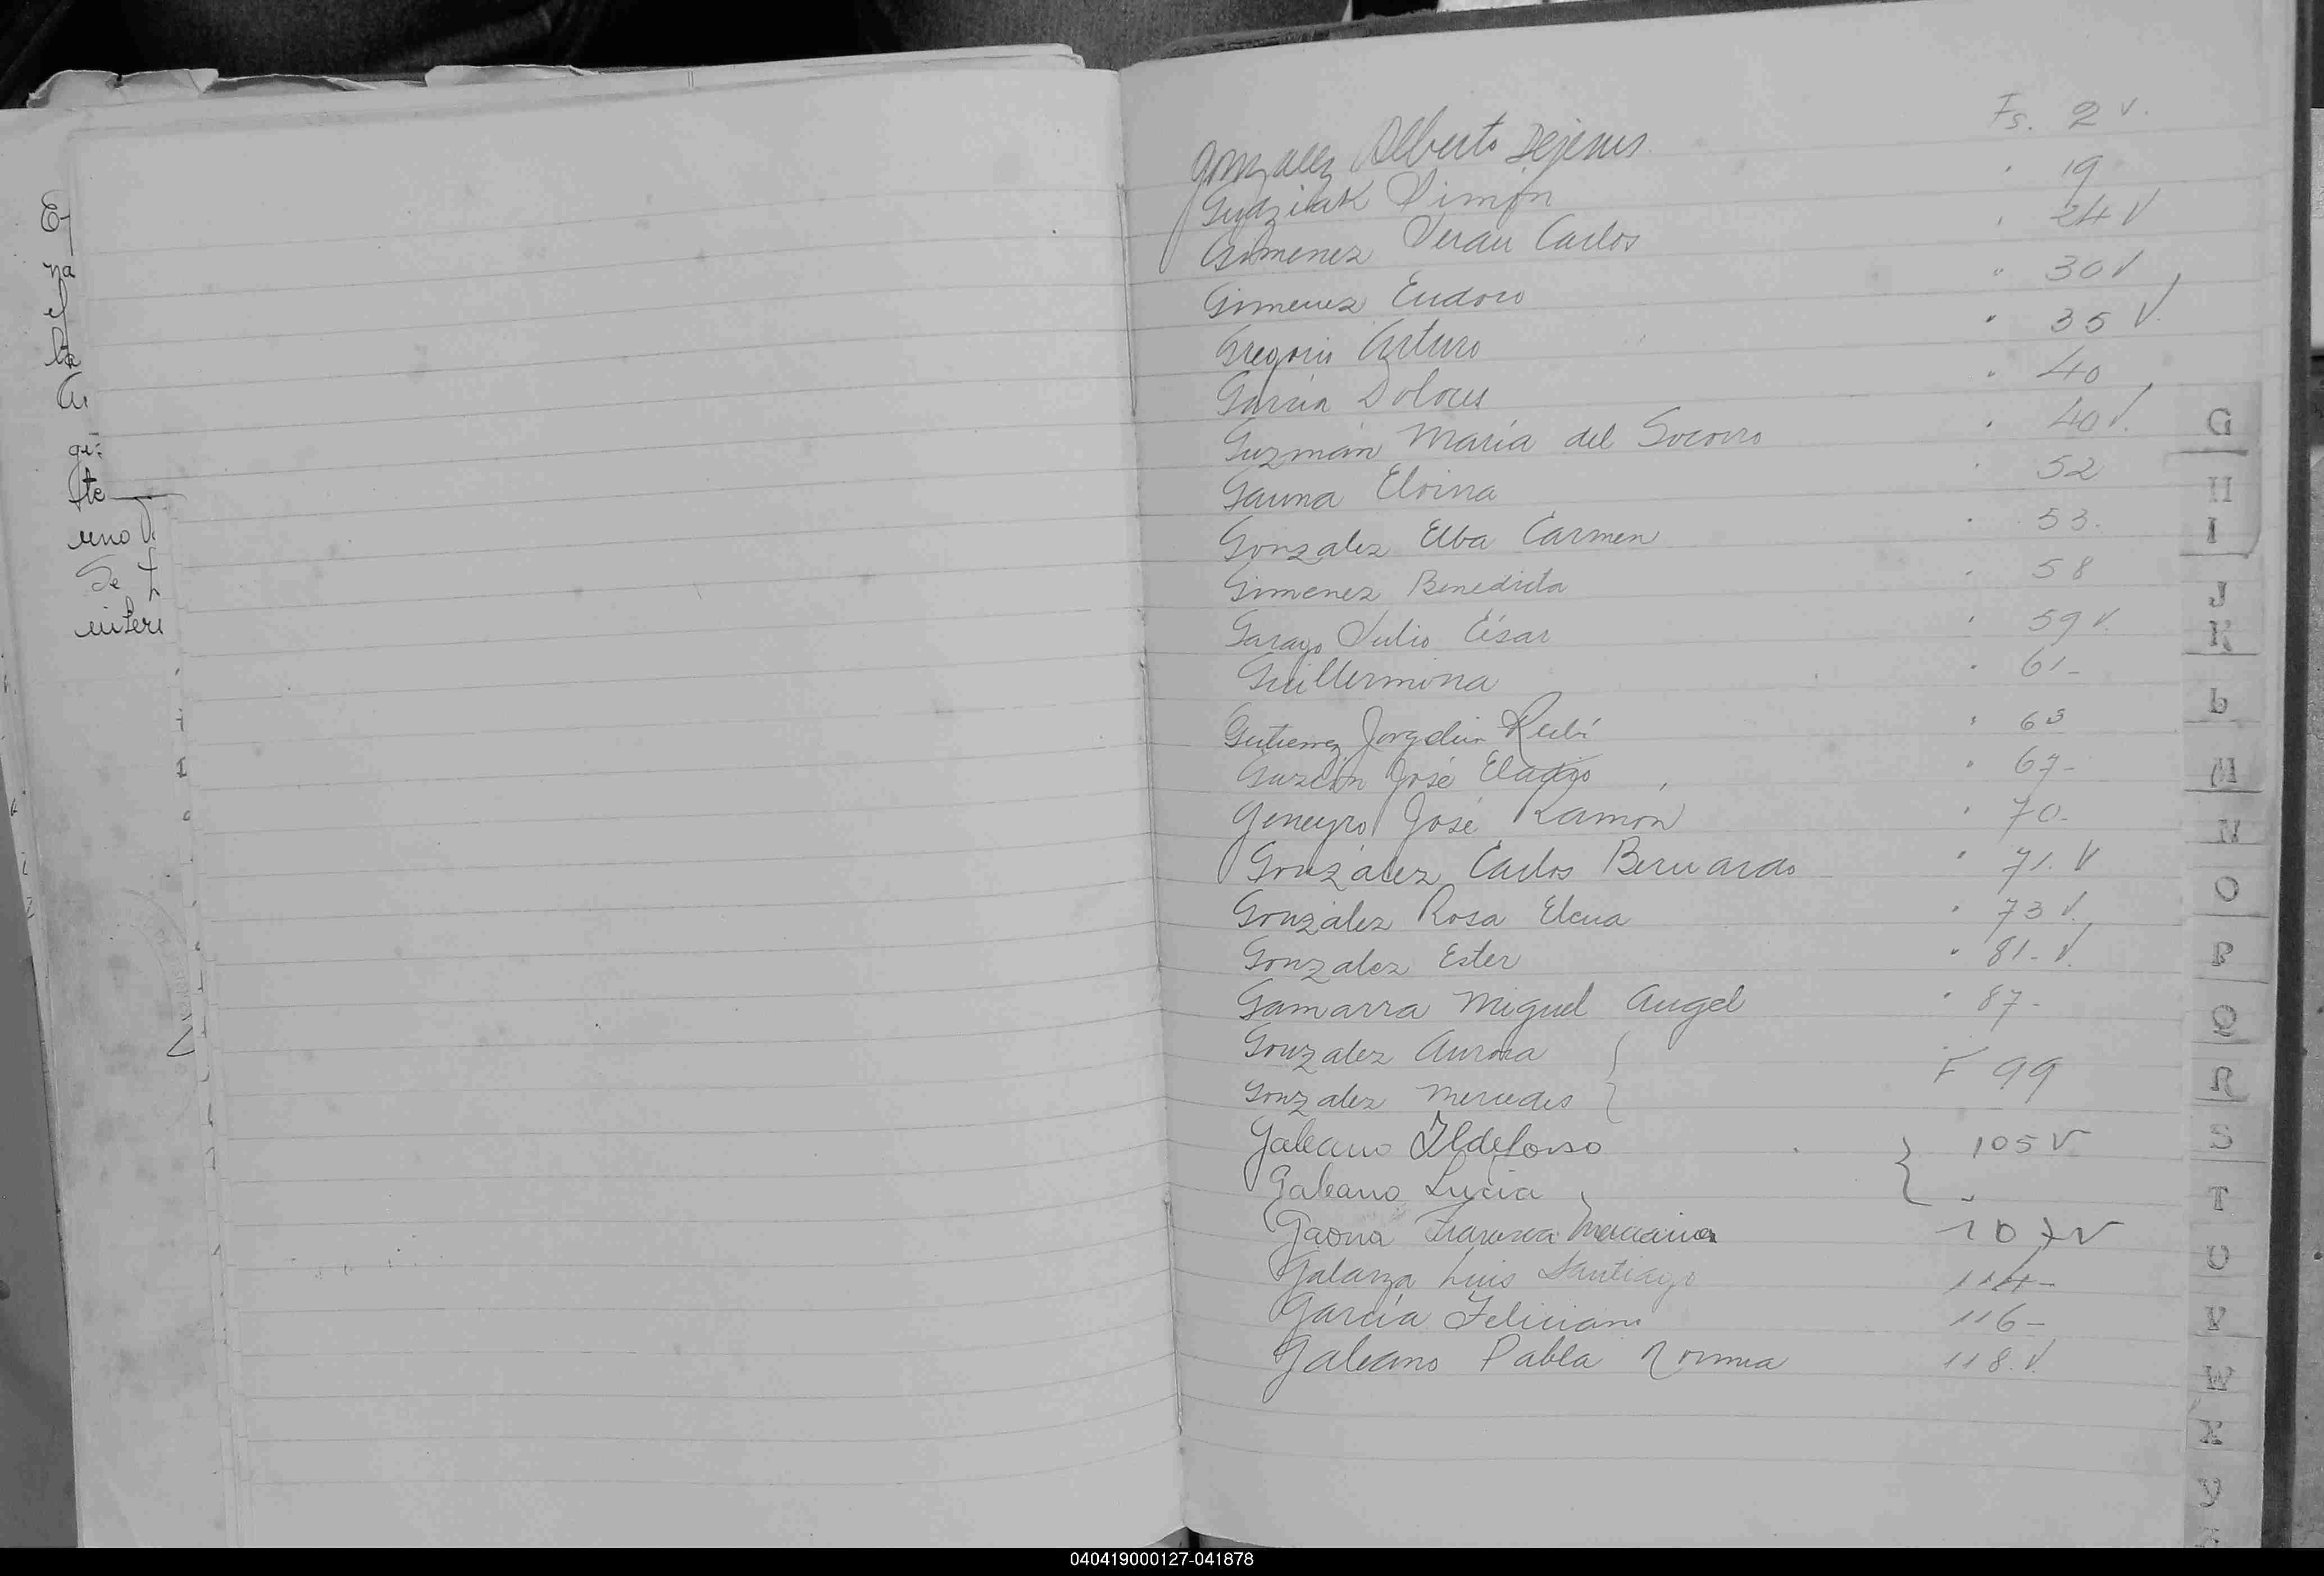 Gonzalez Alberto Dejesus Fs. 2 v.
Gudziak Simón " 19
Gimenez Juan Carlos " 24 V
Gimenez Eudoro " 30 V
Gregorio Arturo " 35 V.
García Dolores " 40
Guzmán María del Socorro " 40 V.
Gauna Eloina " 52
Gonzalez Elba Carmen " 53.
Gimenez Benedicta " 58
Garayo Julio César " 59 V.
Guillermina " 61-
Gutierrez Rubí " 63
Garzón José Eladio " 67-
Geneyro José Ramón " 70-
González Carlos Bernardo " 71. V
González Rosa Elena " 73 V.
Gonzalez Ester " 81- V.
Gamarra Miguel Angel " 87-
Gonzalez Aurora
Gonzalez Mercedes } F 99
Galeano Ildefonso } 105 V
Galeano Lucia "
Gaona Francisca Marciana 107 V
Galarza Luis Santiago 114-
García Feliciano 116-
Galeano Pabla Norma 118. V.
G
H
I
J
K
L
M
N
O
P
Q
R
S
T
U
V
W
X
Y
na
el
la
te
uno
Se
040419000127-041878